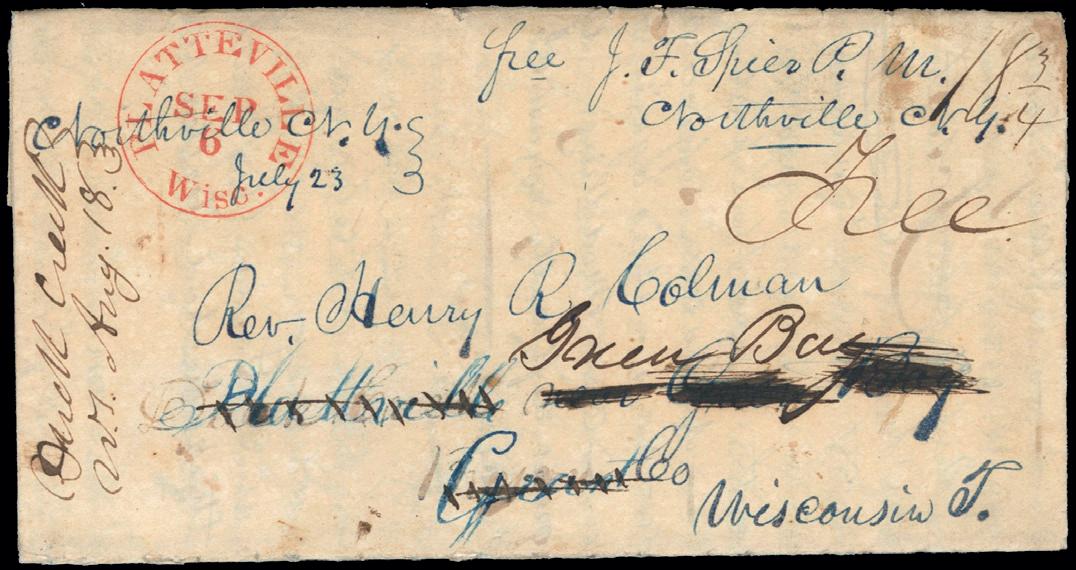 PLATTEVILLE
SEP
6
Wisc.
Northville N. Y.
July 23
free J. F. Spier P. M.
Northville N. Y.
18 3/4
Free
Duck Creek
W. T. Aug. 18.
Rev. Henry R Colman
Green Bay
Platteville near Green Bay
Grant Co
Wisconsin T.